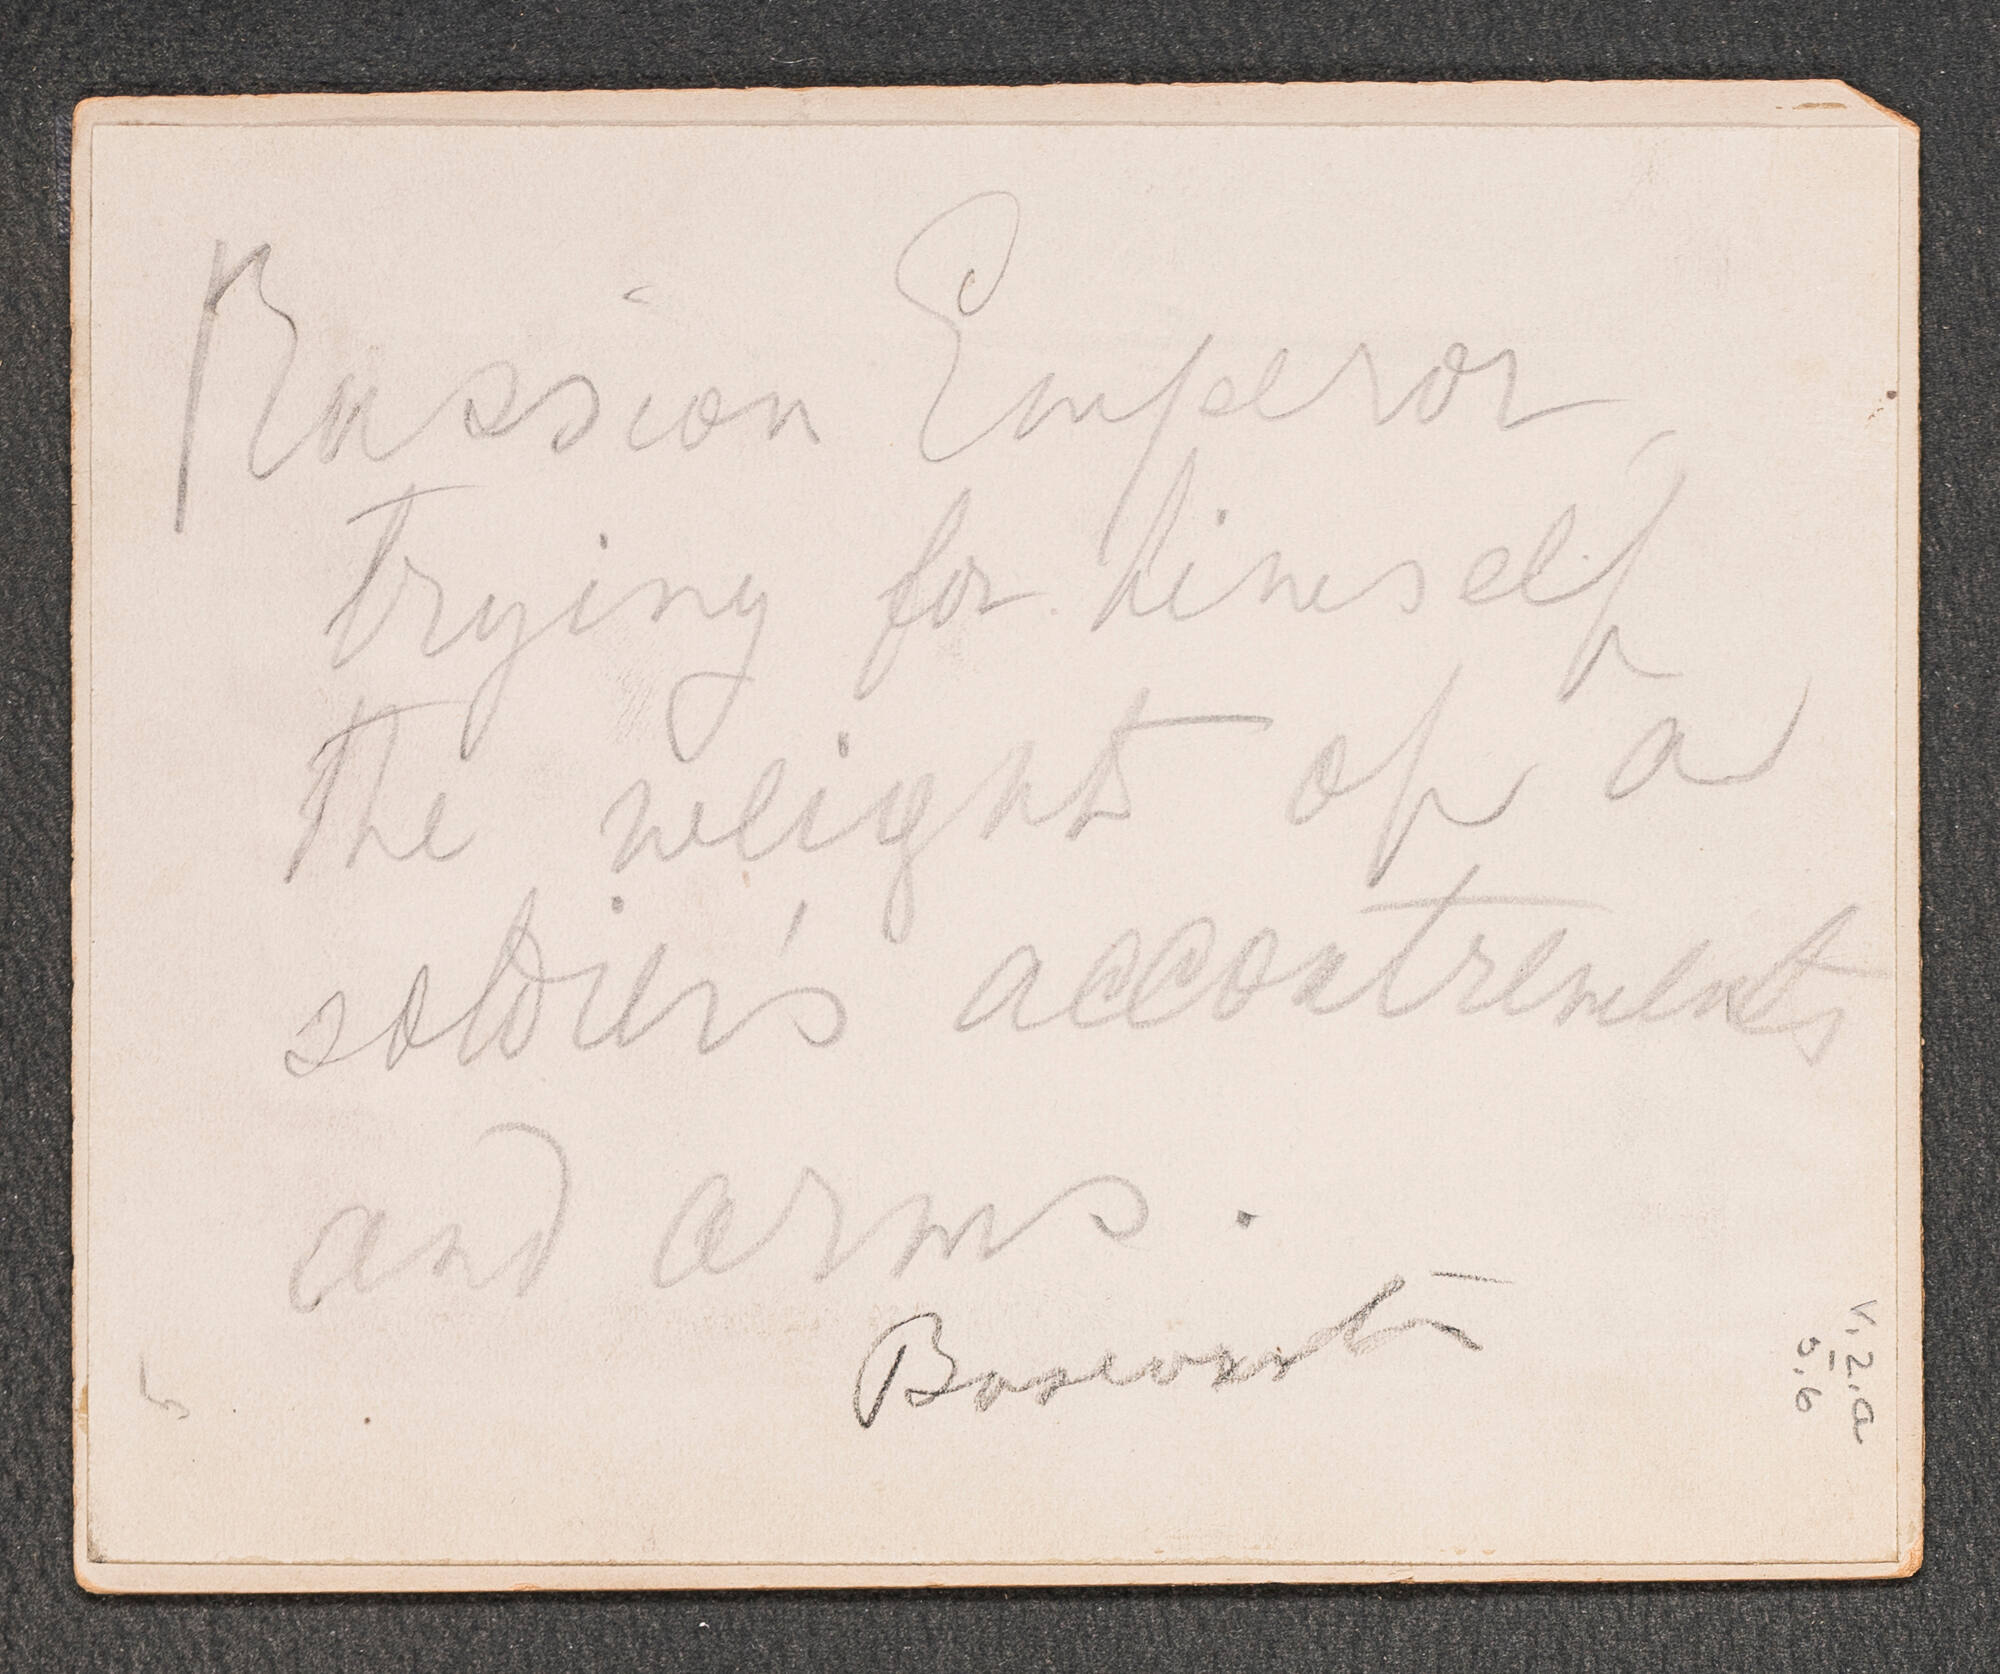 Russian Emperor,
trying for himself
the weight of a
soldier's accoutrements
and arms.
V.2.a
5.6